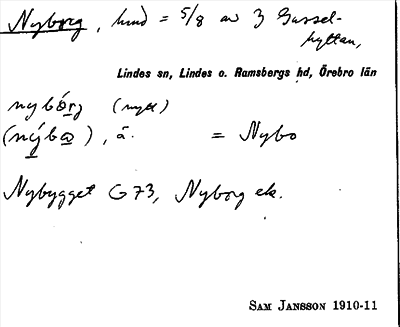 Nyborg, hmd = 5/8 av 3 Gussel-
hyttan,
Lindes sn, Lindes o. Ramsbergs hd, Örebro län
nybórj (nytt)
(nýbo), ä. = Nybo
Nybygget G 73, Nyborg ek.
SAM JANSSON 1910-11